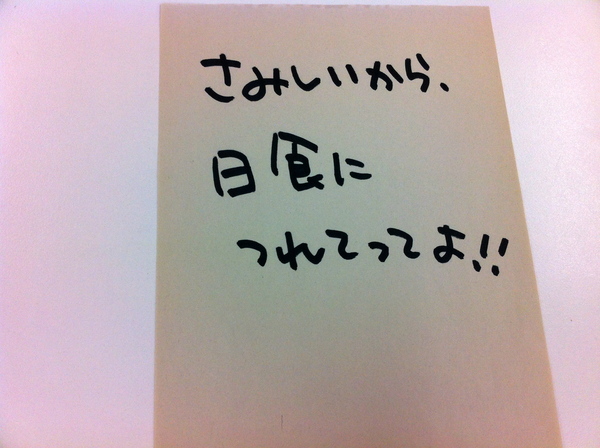 さみしいから、
日食に
つれてってよ!!